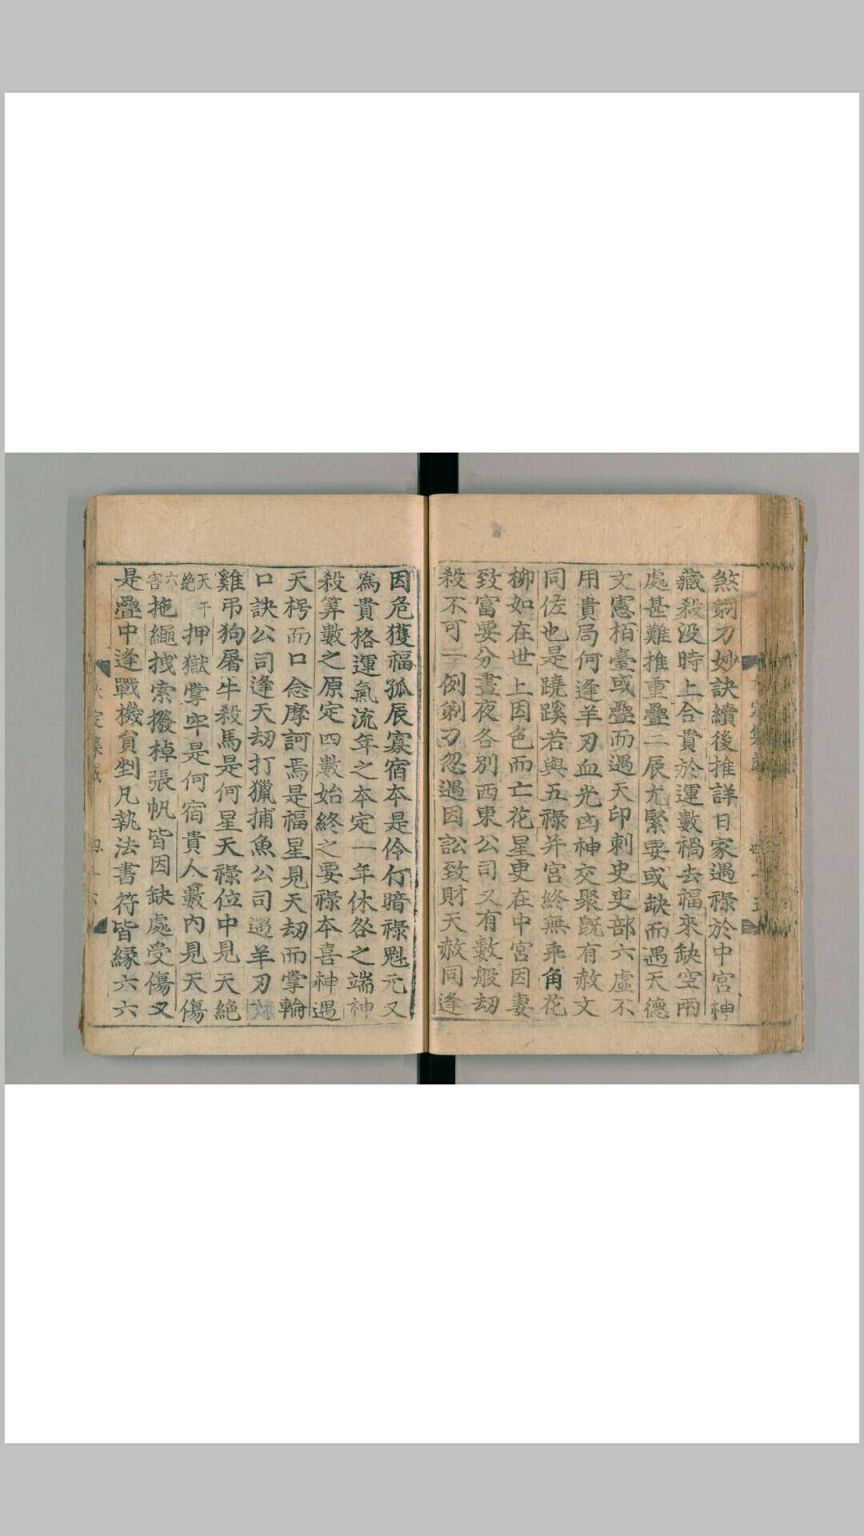 煞剃刀妙訣續後推詳日家遇祿於中宮神
藏殺没時上合貴於運數禍去福來缺空兩
處甚難推重疊二辰尤緊要或缺而遇天德
文憲栢臺或疊而遇天印刺史吏部六虛不
用貴局何逢羊刃血光凶神交聚旣有赦文
同佐也是蹺蹊若與五祿并宮終無乖角花
柳如在世上因色而亡花星更在中宮因妻
致富要分晝夜各別西東公司又有數般劫
殺不可一例剃刀忽遇因訟致財天赦同逢
因危獲福孤辰寡宿本是伶仃暗祿魁元又
爲貴格運氣流年之本定一年休咎之端神
殺筭數之原定四數始終之要祿本喜神遇
天楞而口念摩訶焉是福星見天刧而掌輪
口訣公司逢天刧打獵捕魚公司遇羊刃
雞弔狗屠牛殺馬是何星天祿位中見天絕
天干絕押獄掌牢是何宿貴人藪內見天傷
六害拖繩拽索撥棹張帆皆因缺處受傷又
是疊中逢戰機賓剉凡執法書符皆緣六六